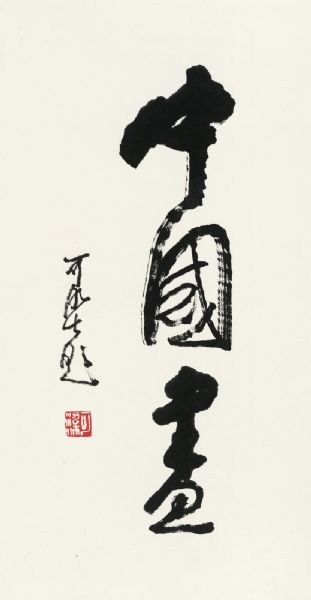 中國畫
可染題